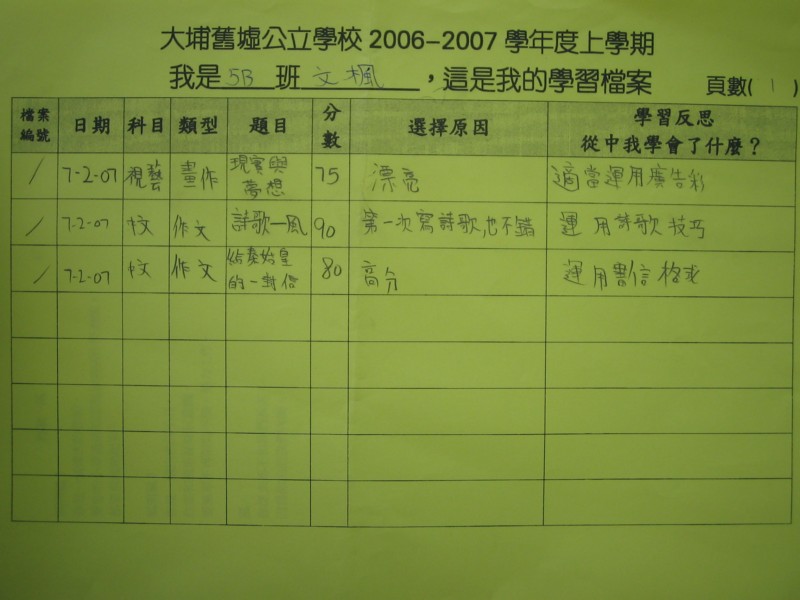 大埔舊墟公立學校 2006-2007 學年度上學期
我是 5B 班 文楓 ，這是我的學習檔案 頁數( 1 )
檔案編號 日期 科目 類型 題目 分數 選擇原因 學習反思 從中我學會了什麼？
/ 7-2-07 視藝 畫作 現實與夢想 75 漂亮 適當運用廣告彩
/ 7-2-07 中文 作文 詩歌—風 90 第一次寫詩歌,也不錯 運用詩歌技巧
/ 7-2-07 中文 作文 給秦始皇的一封信 80 高分 運用書信格式